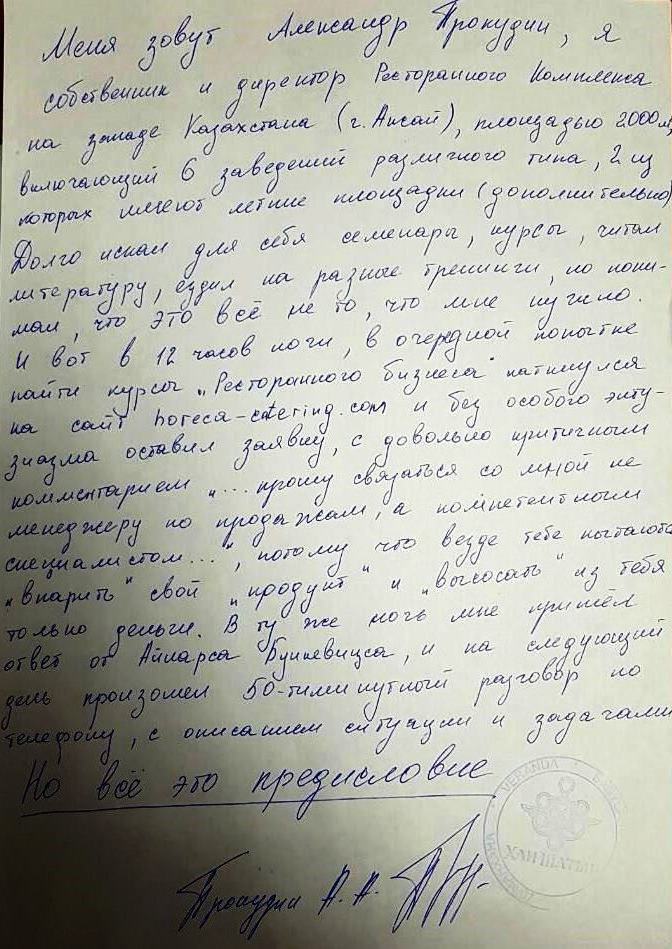 Меня зовут Александр Прокудин, я
собственник и директор Ресторанного Комплекса
на западе Казахстана (г. Аксай), площадью 2000м,
включающий 6 заведений различного типа, 2 из
которых имеют летние площадки (дополнительно)
Долго искал для себя семенары, курсы, читал
литературу, ездил на разные тренинги, но пони-
мал, что это всё не то, что мне нужно.
И вот в 12 часов ночи, в очередной попытке
найти курсы „Ресторанного бизнеса" наткнулся
на сайт horeca-catering.com и без особого энту-
зиазма оставил заявку, с довольно критичным
комментарием „... прошу связаться со мной не
менеджеру по продажам, а компетентным
специалистом...", потому что везде тебе пытаются
„впарить" свой „продукт" и „высосать" из тебя
только деньги. В ту же ночь мне пришёл
ответ от Айнарса Бункевицса, и на следующий
день произошел 50-тиминутный разговор по
телефону, с описанием ситуации и задачами
Но всё это предисловие
VERANDA
ХАН ШАТЫР
Прокудин А. А.